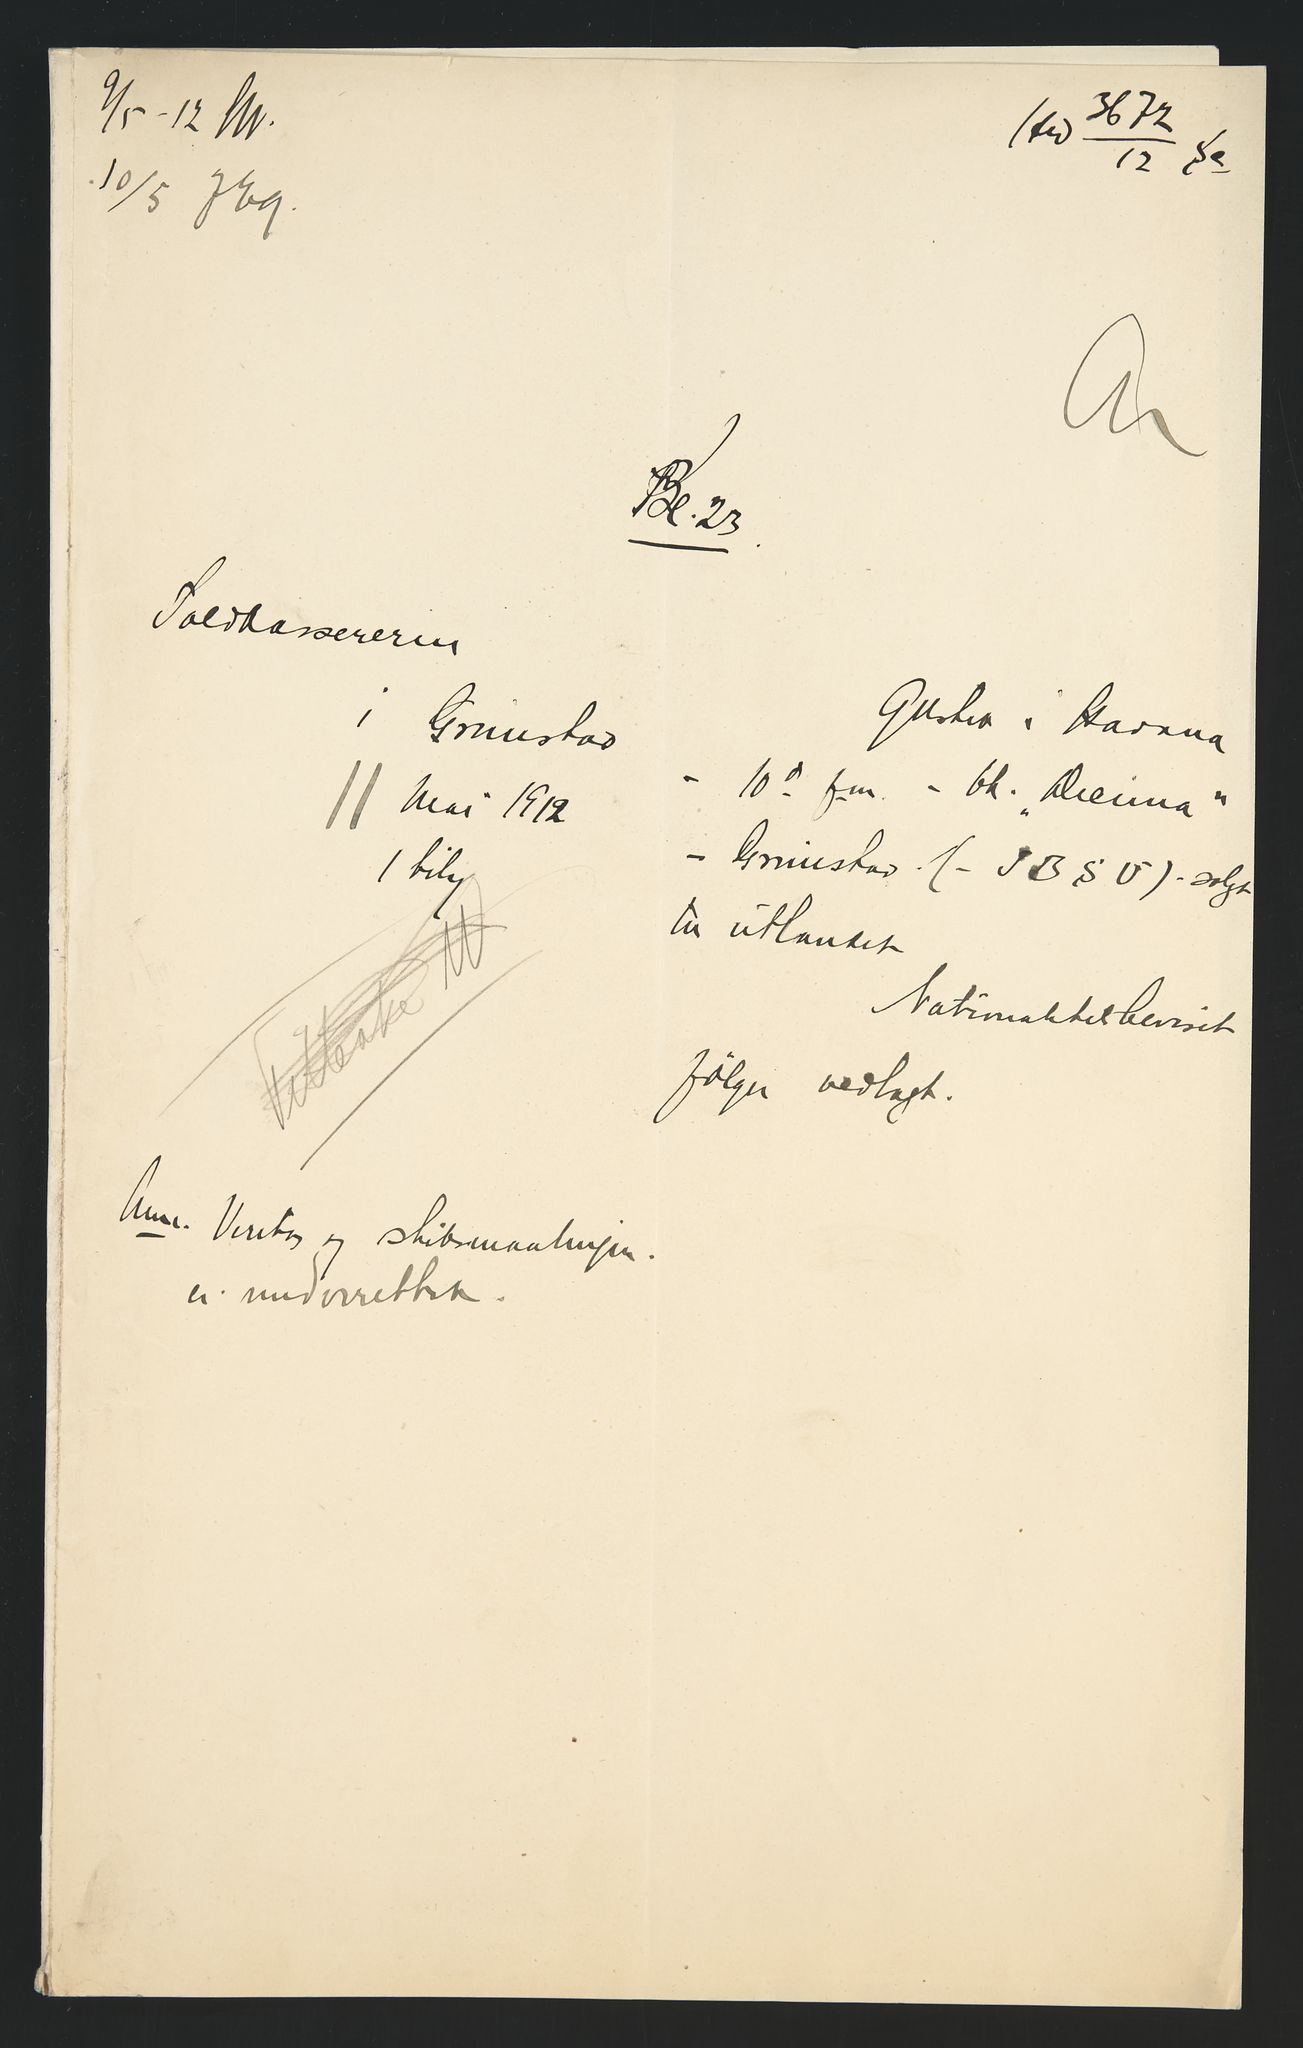 9/5 - 12
10/5
3672
12
Be. 23.
Toldkassereren
i Grimstad
11 Mai 1912
1 bilg
i Havana
- 10 d fm. - bk. „Decima"
- Grimstad. (- J B S V) - solgt
til utlandet
Nationalitetsbeviset
følger vedlagt.
Anm. Veritas og skibsmaalingen.
er underrettet.